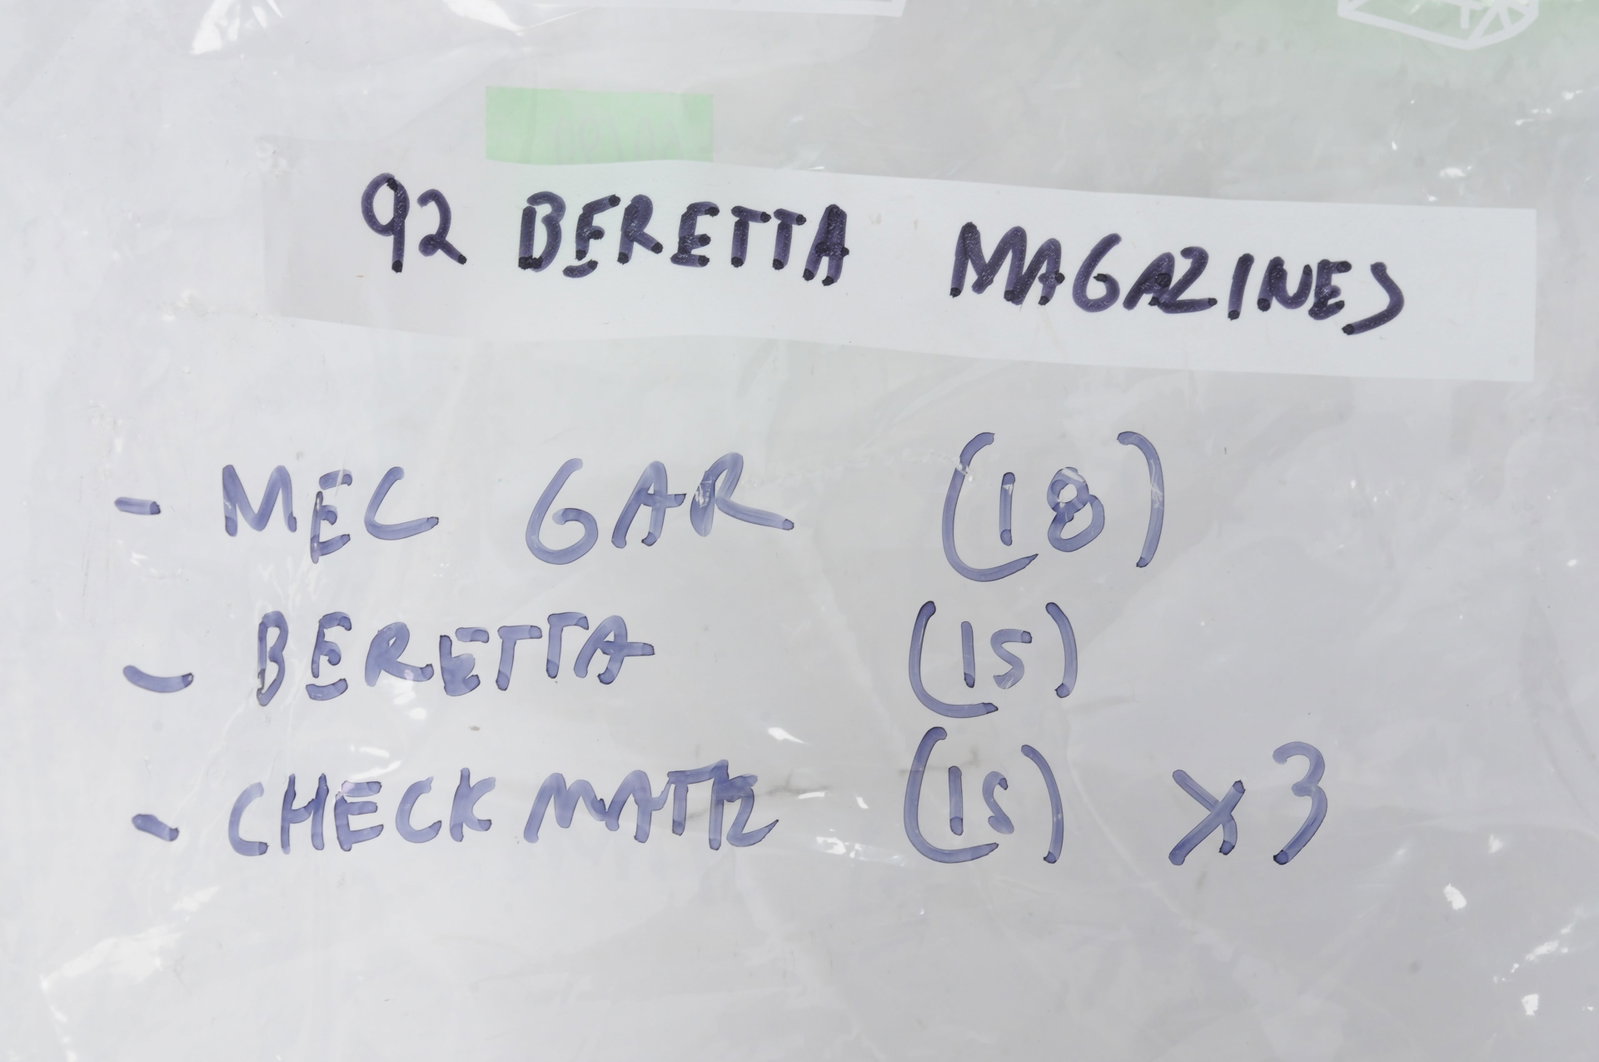 92 BERETTA MAGAZINES
- MEC GAR (18)
- BERETTA (15)
- CHECK MATE (15) x3